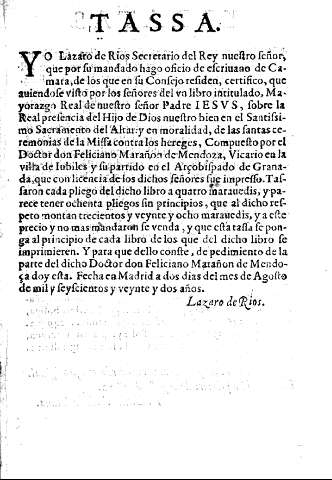 TASSA.
YO Lazaro de Rios Secretario del Rey nuestro señor,
que por su mandado hago oficio de escriuano de Ca-
mara, de los que en su Consejo residen, certifico, que
auiendose visto por los señores del vn libro intitulado, Ma-
yorazgo Real de nuestro señor Padre IESVS, sobre la
Real presencia del Hijo de Dios nuestro bien en el Santissi-
mo Sacramento del Altar: y en moralidad, de las santas ce-
remonias de la Missa contra los hereges, Compuesto por el
Doctor don Feliciano Marañon de Mendoza, Vicario en la
villa de Iubiles y su partido en el Arçobispado de Grana-
da, que con licencia de los dichos señores fue impresso. Tas-
saron cada pliego del dicho libro a quatro marauedis, y pa-
rece tener ochenta pliegos sin principios, que al dicho res-
peto montan trecientos y veynte y ocho marauedis, y a este
precio y no mas mandaron se venda, y que esta tassa se pon-
ga al principio de cada libro de los que del dicho libro se
imprimieren. Y para que dello conste, de pedimiento de la
parte del dicho Doctor don Feliciano Marañon de Mendo-
ça doy esta. Fecha en Madrid a dos dias del mes de Agosto
de mil y seyscientos y veynte y dos años.
Lazaro de Rios.